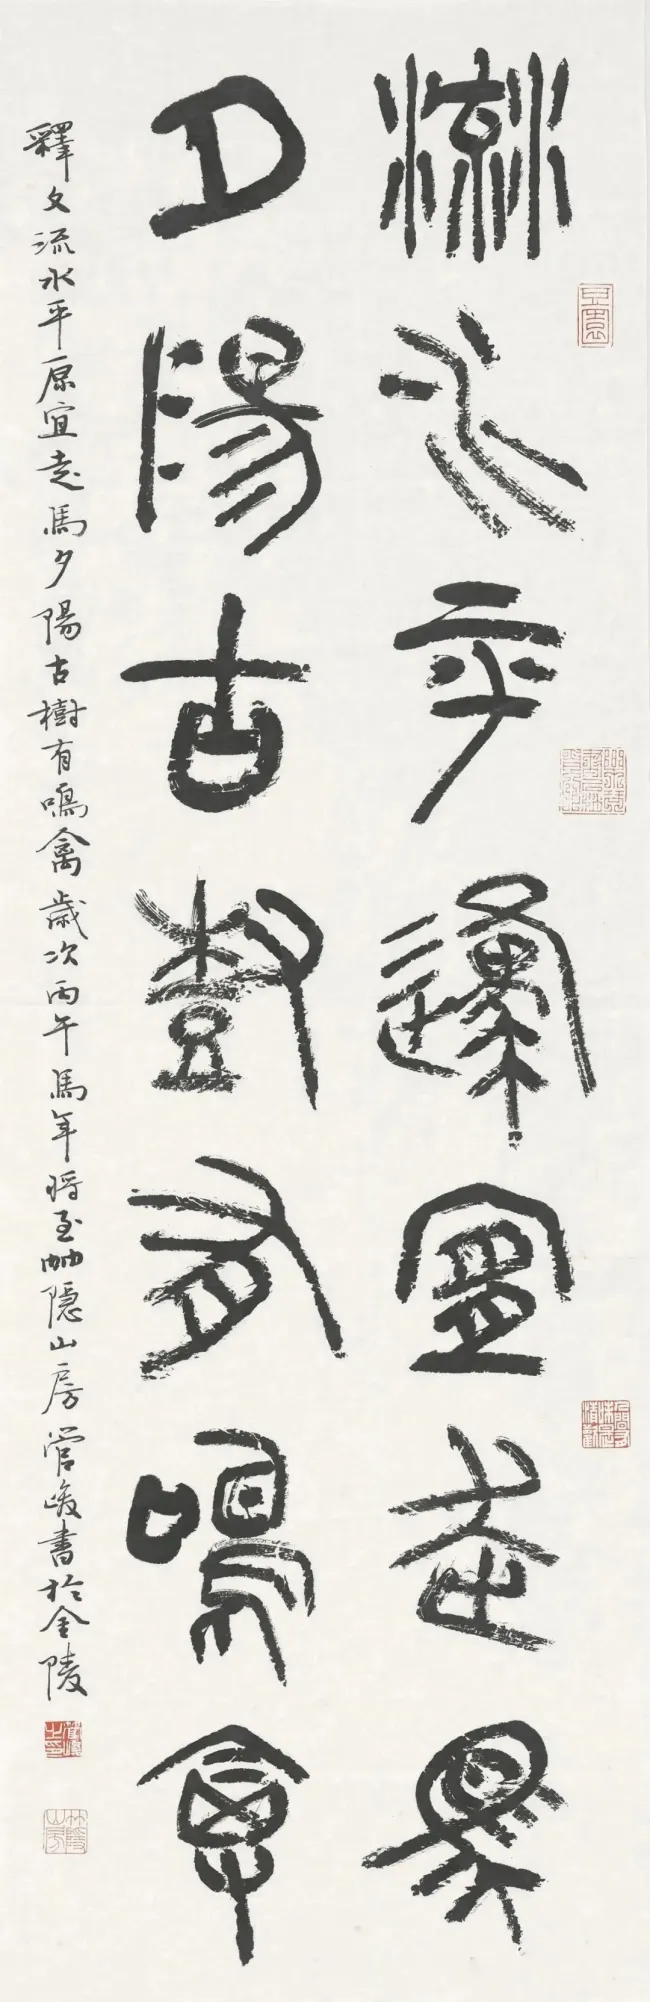 流水平原宜走馬
夕陽古樹有鳴禽
釋文流水平原宜走馬夕陽古樹有鳴禽歲次丙午馬年將至 隱山房管峻書於金陵